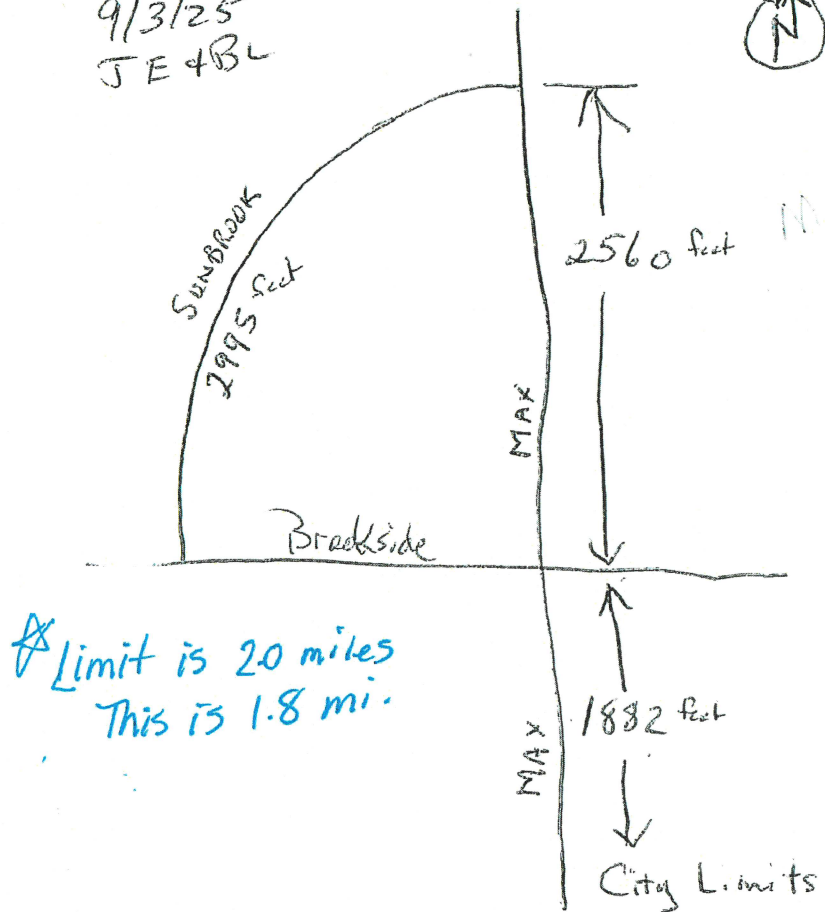 9/3/25
JE & BL
N
SUNBROOK
2995 feet
2560 feet
MAX
Brookside
☆ Limit is 2.0 miles
This is 1.8 mi.
1882 feet
MAX
City Limits